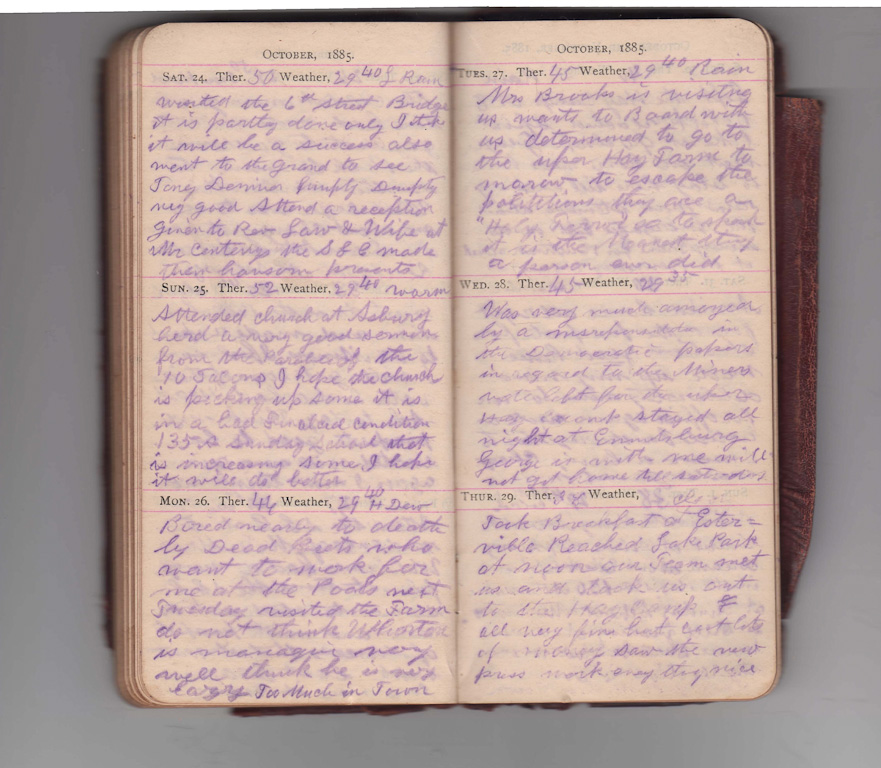 OCTOBER, 1885.
SAT. 24. Ther. 50 Weather, 29 40 Rain
visited the 6th Street Bridge
it is partly done only I think
it will be a success also
went to the grand to see
Tony Denier Humpty Dumpty
very good Attend a reception
given to Rev Law & Wife at
Mr the S S C made
them hansom presents
SUN. 25. Ther. 52 Weather, 29 40 warm
Attended church at Asbury
herd a very good somon
from the Parable of the
10 I hope the church
is picking up some it is
in a bad condition
135 Sunday School that
is increasing some I hope
it will do better
MON. 26. Ther. 44 Weather, 29 40 H Dew
Bored nearly to death
by Dead Beets who
want to work for
me at the Pools next
Tuesday visited the Farm
do not think
is managin very
well think he is very
Too Much in Town
OCTOBER, 1885.
TUES. 27. Ther. 45 Weather, 29 40 Rain
Mrs Brooks is visiting
us wants to Board with
us determined to go to
the uper Hay Farm to
morow to escape the
politetions they are a
to
it is the thing
a person ever did
WED. 28. Ther. 45 Weather, 29 35
Was very much anoyed
by a in
the Democratic papers
in regard to the Miners
for the uper
Hay stayed all
night at Emmetsburg
George is with me will
not get home
THUR. 29. Ther. Weather,
Took Breakfast at Ester=
ville Reached Lake Park
at noon our Team met
us and took us out
to the Hay Camp
all very fine but cost lots
of money Saw the new
press work nice